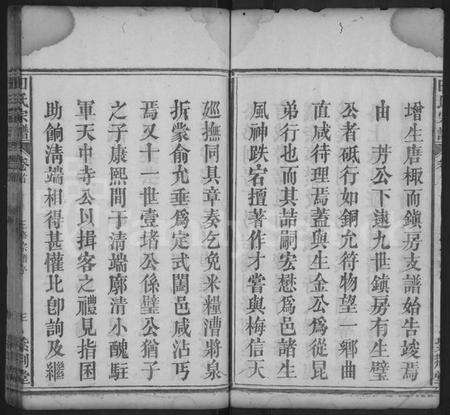 增生唐棷而鎮房支譜始告竣焉
由 芳公下逮九世鎮房有生璧
公者砥行如銅允符物望一鄉曲
直咸待理焉葢與生金公爲從昆
弟行也而其嗣宏懋爲邑諸生
風神跌宕擅著作才嘗與梅信天
巡撫同具章奏乞免米糧漕將泉
折蒙俞允垂爲定式閭邑咸沾丐
焉又十一世壹堵公係璧公猶子
之子康熙間于清端廓清小醜駐
軍天中寺公以揖客之禮見指囷
助餉清端相得甚懽比卽詢及繼
田氏宗譜 卷首